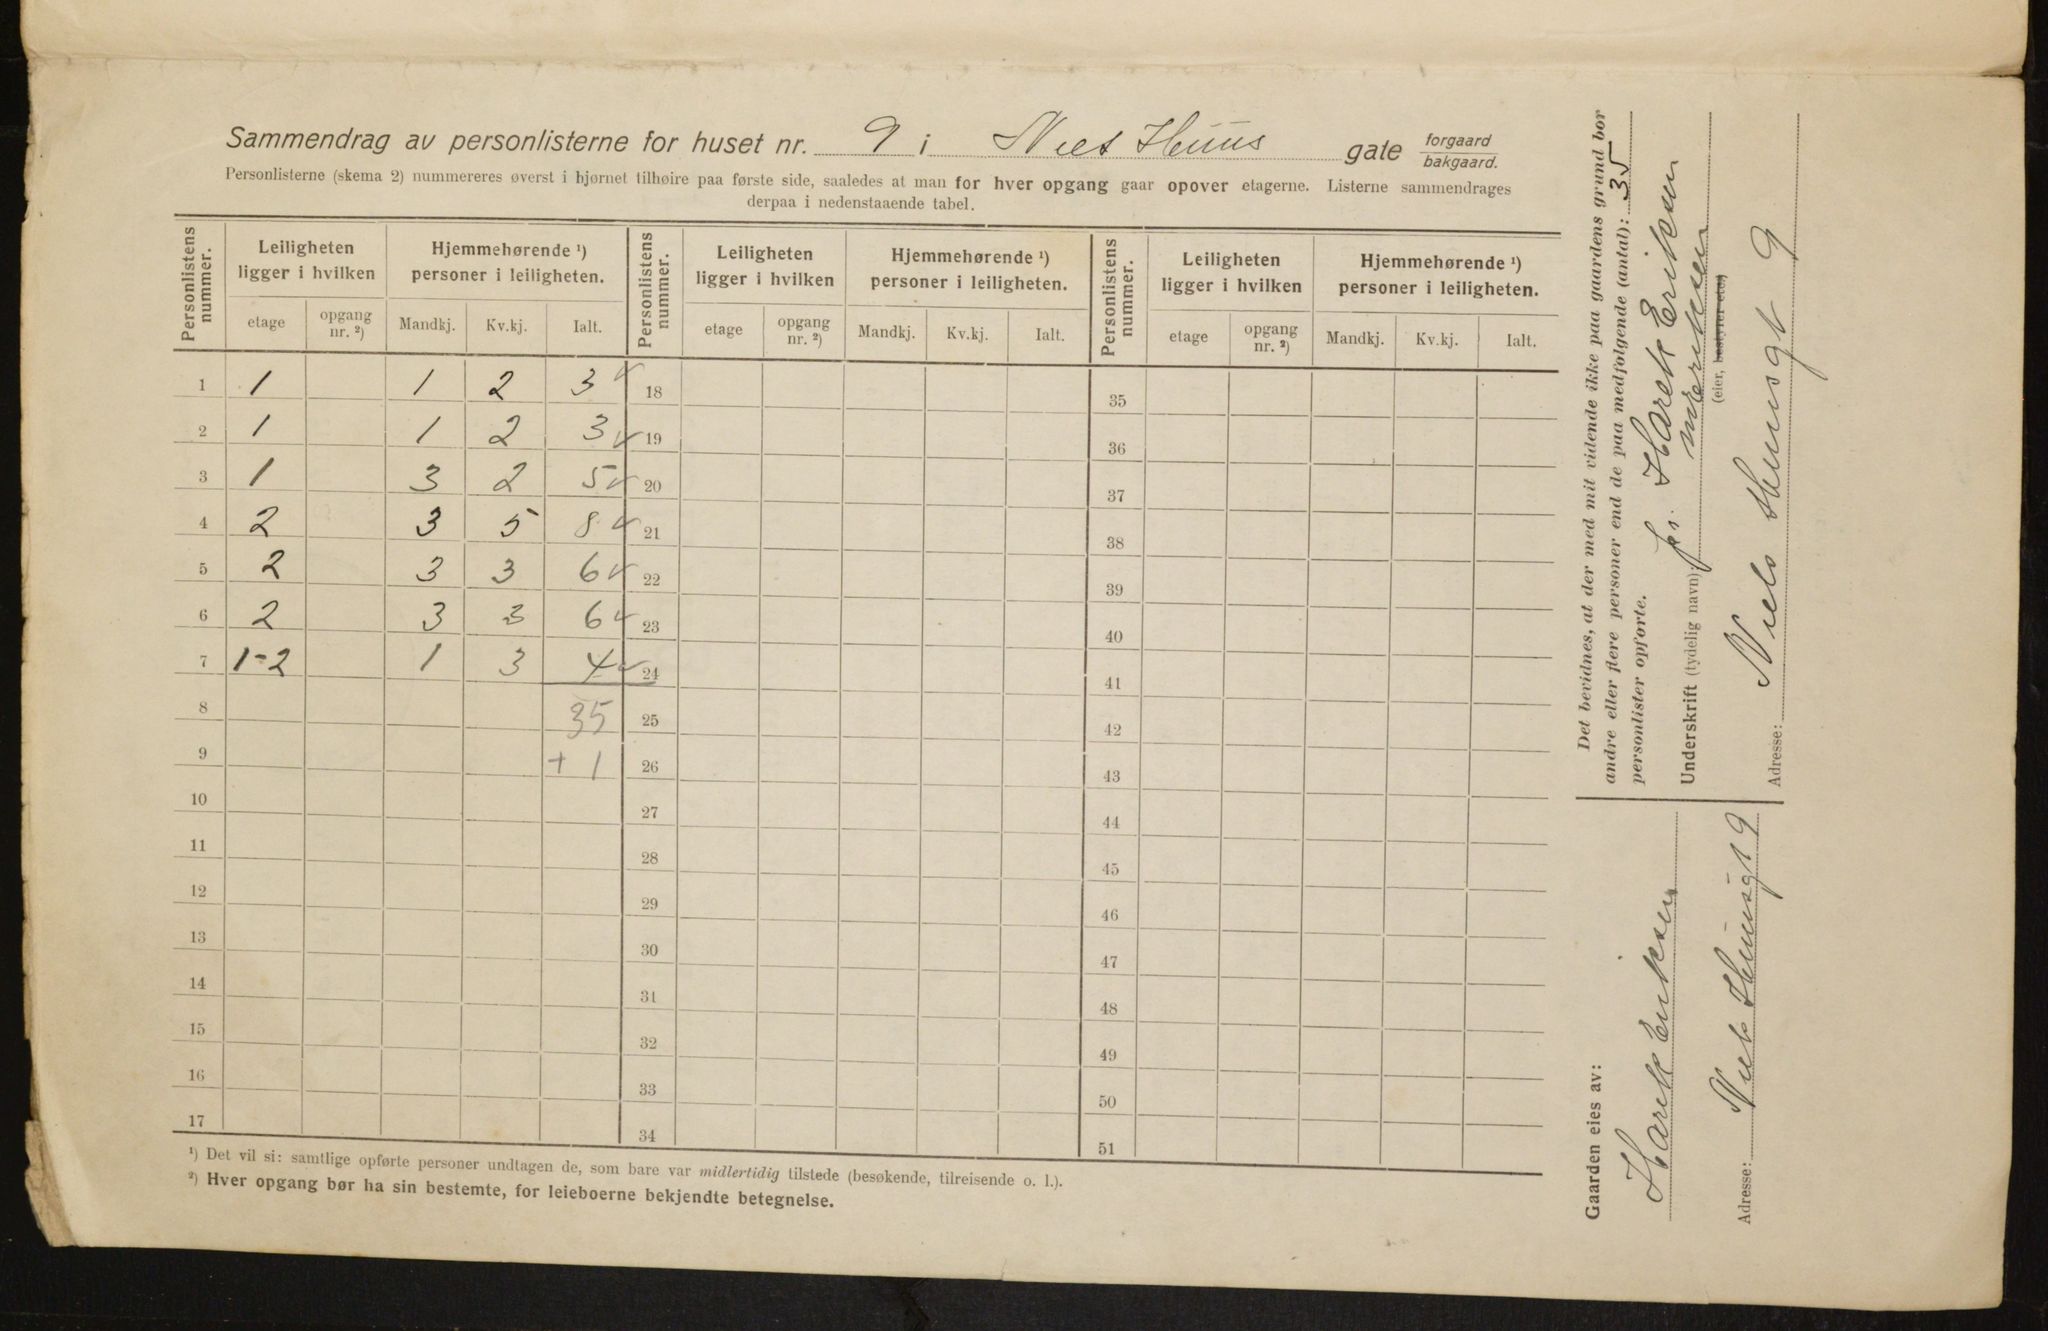 Sammendrag av personlisterne for huset nr. 9 i Niels Huus gate forgaard bakgaard.
Personlisterne (skema 2) nummereres øverst i hjørnet tilhøire paa første side, saaledes at man for hver opgang gaar opover etagerne. Listerne sammendrages
derpaa i nedenstaaende tabel.
Personlistens nummer. Leiligheten ligger i hvilken Hjemmehørende ¹) personer i leiligheten. Personlistens nummer. Leiligheten ligger i hvilken Hjemmehørende ¹) personer i leiligheten. Personlistens nummer. Leiligheten ligger i hvilken Hjemmehørende ¹) personer i leiligheten.
etage opgang nr. ²) Mandkj. Kv.kj. Ialt. etage opgang nr. ²) Mandkj. Kv.kj. Ialt. etage opgang nr. ²) Mandkj. Kv.kj. Ialt.
1 1 1 2 3 ✓ 18 35
2 1 1 2 3 ✓ 19 36
3 1 3 2 5 ✓ 20 37
4 2 3 5 8 ✓ 21 38
5 2 3 3 6 ✓ 22 39
6 2 3 3 6 ✓ 23 40
7 1-2 1 3 4 ✓ 24 41
8 35 25 42
9 + 1 26 43
10 27 44
11 28 45
12 29 46
13 30 47
14 31 48
15 32 49
16 33 50
17 34 51
¹) Det vil si: samtlige opførte personer undtagen de, som bare var midlertidig tilstede (besøkende, tilreisende o. l.).
²) Hver opgang bør ha sin bestemte, for leieboerne bekjendte betegnelse.
Det bevidnes, at der med mit vidende ikke paa gaardens grund bor
andre eller flere personer end de paa medfølgende (antal): 35
personlister opførte.
Underskrift (tydelig navn): Harek Eriksen
(eier, bestyrer etc)
Adresse: Niels Huusgt 9
Gaarden eies av:
Harek Eriksen
Adresse: Niels Huusgt 9